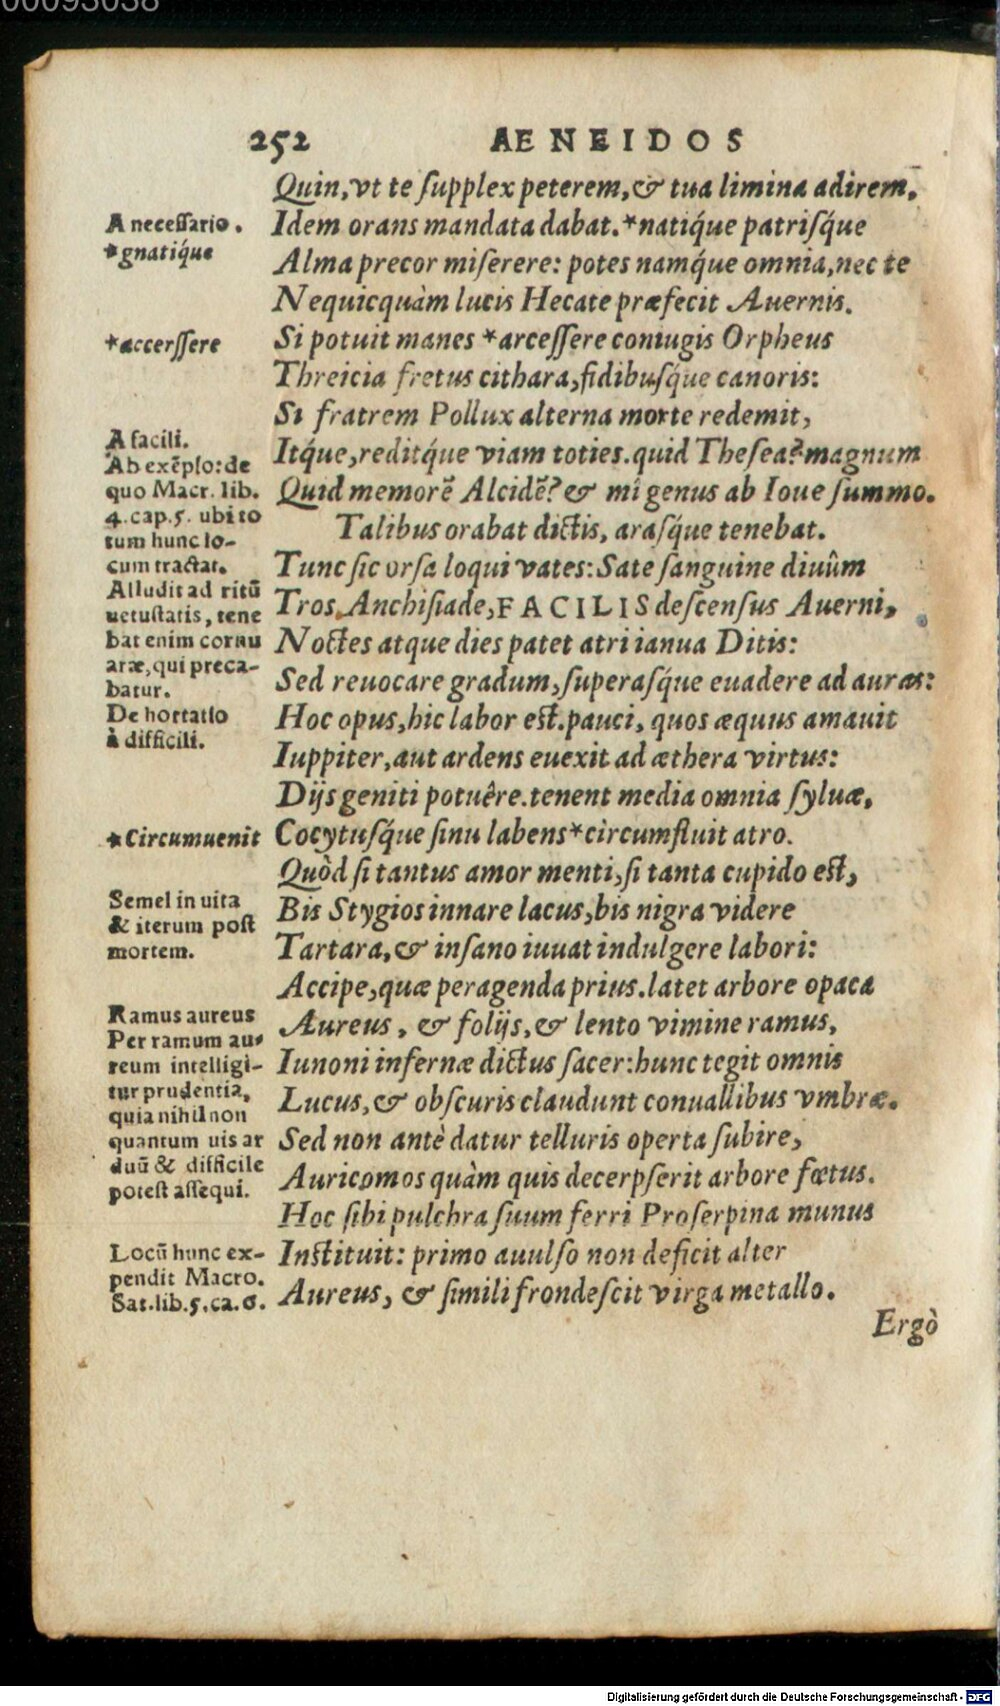 00093038
252 AENEIDOS
Quin, vt te supplex peterem, & tua limina adirem,
A necessario.
Idem orans mandata dabat. *natiq́ue patrisq́ue
*gnatiq́ue
Alma precor miserere: potes namq́ue omnia, nec te
Nequicquàm lucis Hecate præfecit Auernis.
*accerssere
Si potuit manes *arcessere coniugis Orpheus
Threicia fretus cithara, fidibusq́ue canoris:
Si fratrem Pollux alterna morte redemit,
A facili.
Ab exẽplo: de
quo Macr. lib.
4. cap. 5. ubi to
tum hunc lo-
cum tractat.
Itq́ue, reditq́ue viam toties. quid Thesea? magnum
Quid memorẽ Alcidẽ? & mî genus ab Ioue summo.
Talibus orabat dictis, arasq́ue tenebat.
Alludit ad ritũ
uetustatis, tene
bat enim cornu
aræ, qui preca-
batur.
Tunc sic orsa loqui vates: Sate sanguine diuûm
Tros Anchisiade, FACILIS descensus Auerni,
Noctes atque dies patet atri ianua Ditis:
Sed reuocare gradum, superasq́ue euadere ad auras:
De hortatio
à difficili.
Hoc opus, hic labor est. pauci, quos æquus amauit
Iuppiter, aut ardens euexit ad æthera virtus:
Dijs geniti potuêre. tenent media omnia syluæ,
*Circumuenit
Cocytusq́ue sinu labens *circumfluit atro.
Quòd si tantus amor menti, si tanta cupido est,
Semel in uita
& iterum post
mortem.
Bis Stygios innare lacus, bis nigra videre
Tartara, & insano iuuat indulgere labori:
Accipe, quæ peragenda prius. latet arbore opaca
Ramus aureus
Per ramum au-
reum intelligi-
tur prudentia,
quia nihil non
quantum uis ar
duũ & difficile
potest assequi.
Aureus, & folijs, & lento vimine ramus,
Iunoni infernæ dictus sacer: hunc tegit omnis
Lucus, & obscuris claudunt conuallibus vmbræ.
Sed non antè datur telluris operta subire,
Auricomos quàm quis decerpserit arbore fœtus.
Hoc sibi pulchra suum ferri Proserpina munus
Locũ hunc ex-
pendit Macro.
Sat. lib. 5. ca. 6.
Instituit: primo auulso non deficit alter
Aureus, & simili frondescit virga metallo.
Ergò
Digitalisierung gefördert durch die Deutsche Forschungsgemeinschaft - DFG